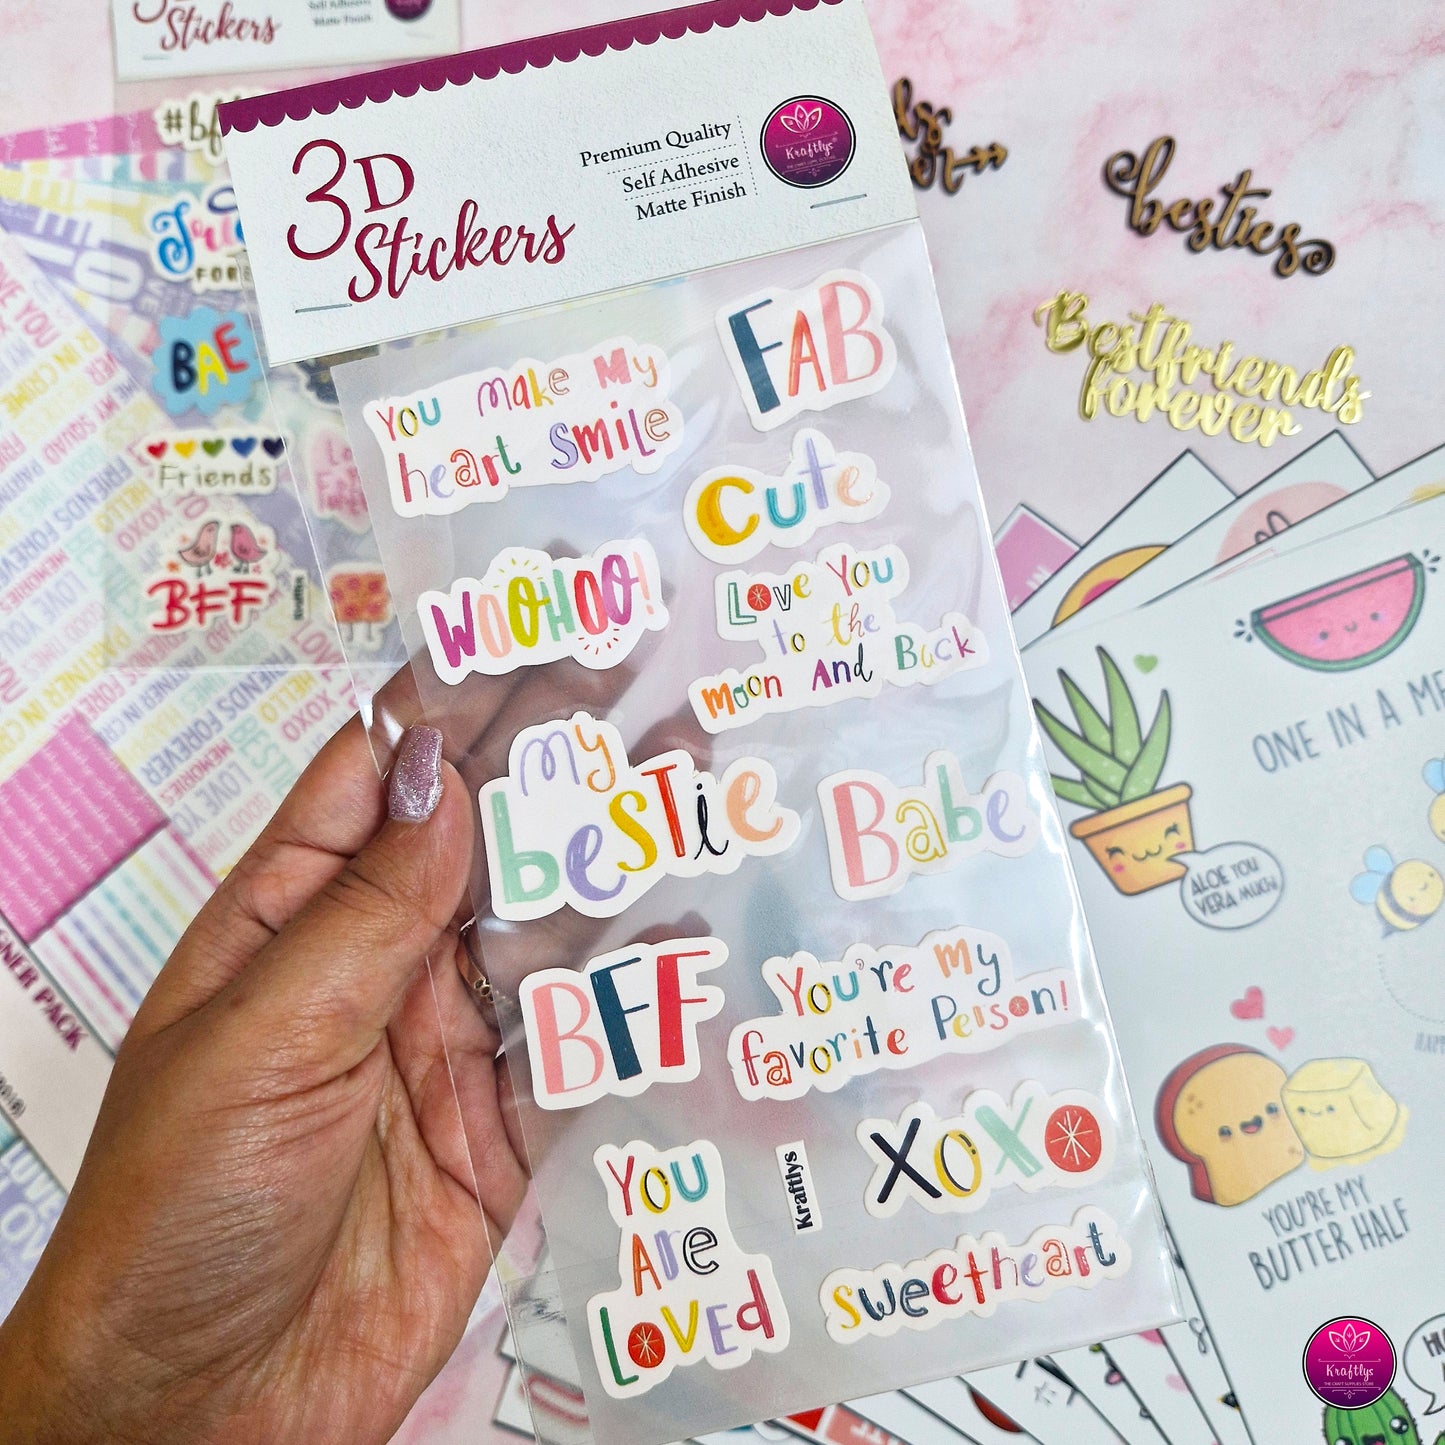 3D
Stickers
Self Adhesive
Matte Finish
3D
Stickers
Premium Quality
Self Adhesive
Matte Finish
Kraftlys
THE CRAFT SUPPLIES STORE
You make my
heart smile
FAB
Cute
WOOHOO!
Love You
to the
Moon And Back
my
bestie
Babe
BFF
You're my
favorite Person!
You
Are
Loved
Kraftlys
XOXO
sweetheart
BAE
Friends
BFF
Kraftlys
besties
Bestfriends
forever
ONE IN A
ALOE YOU
VERA MUCH
YOU'RE MY
BUTTER HALF
Kraftlys
THE CRAFT SUPPLIES STORE